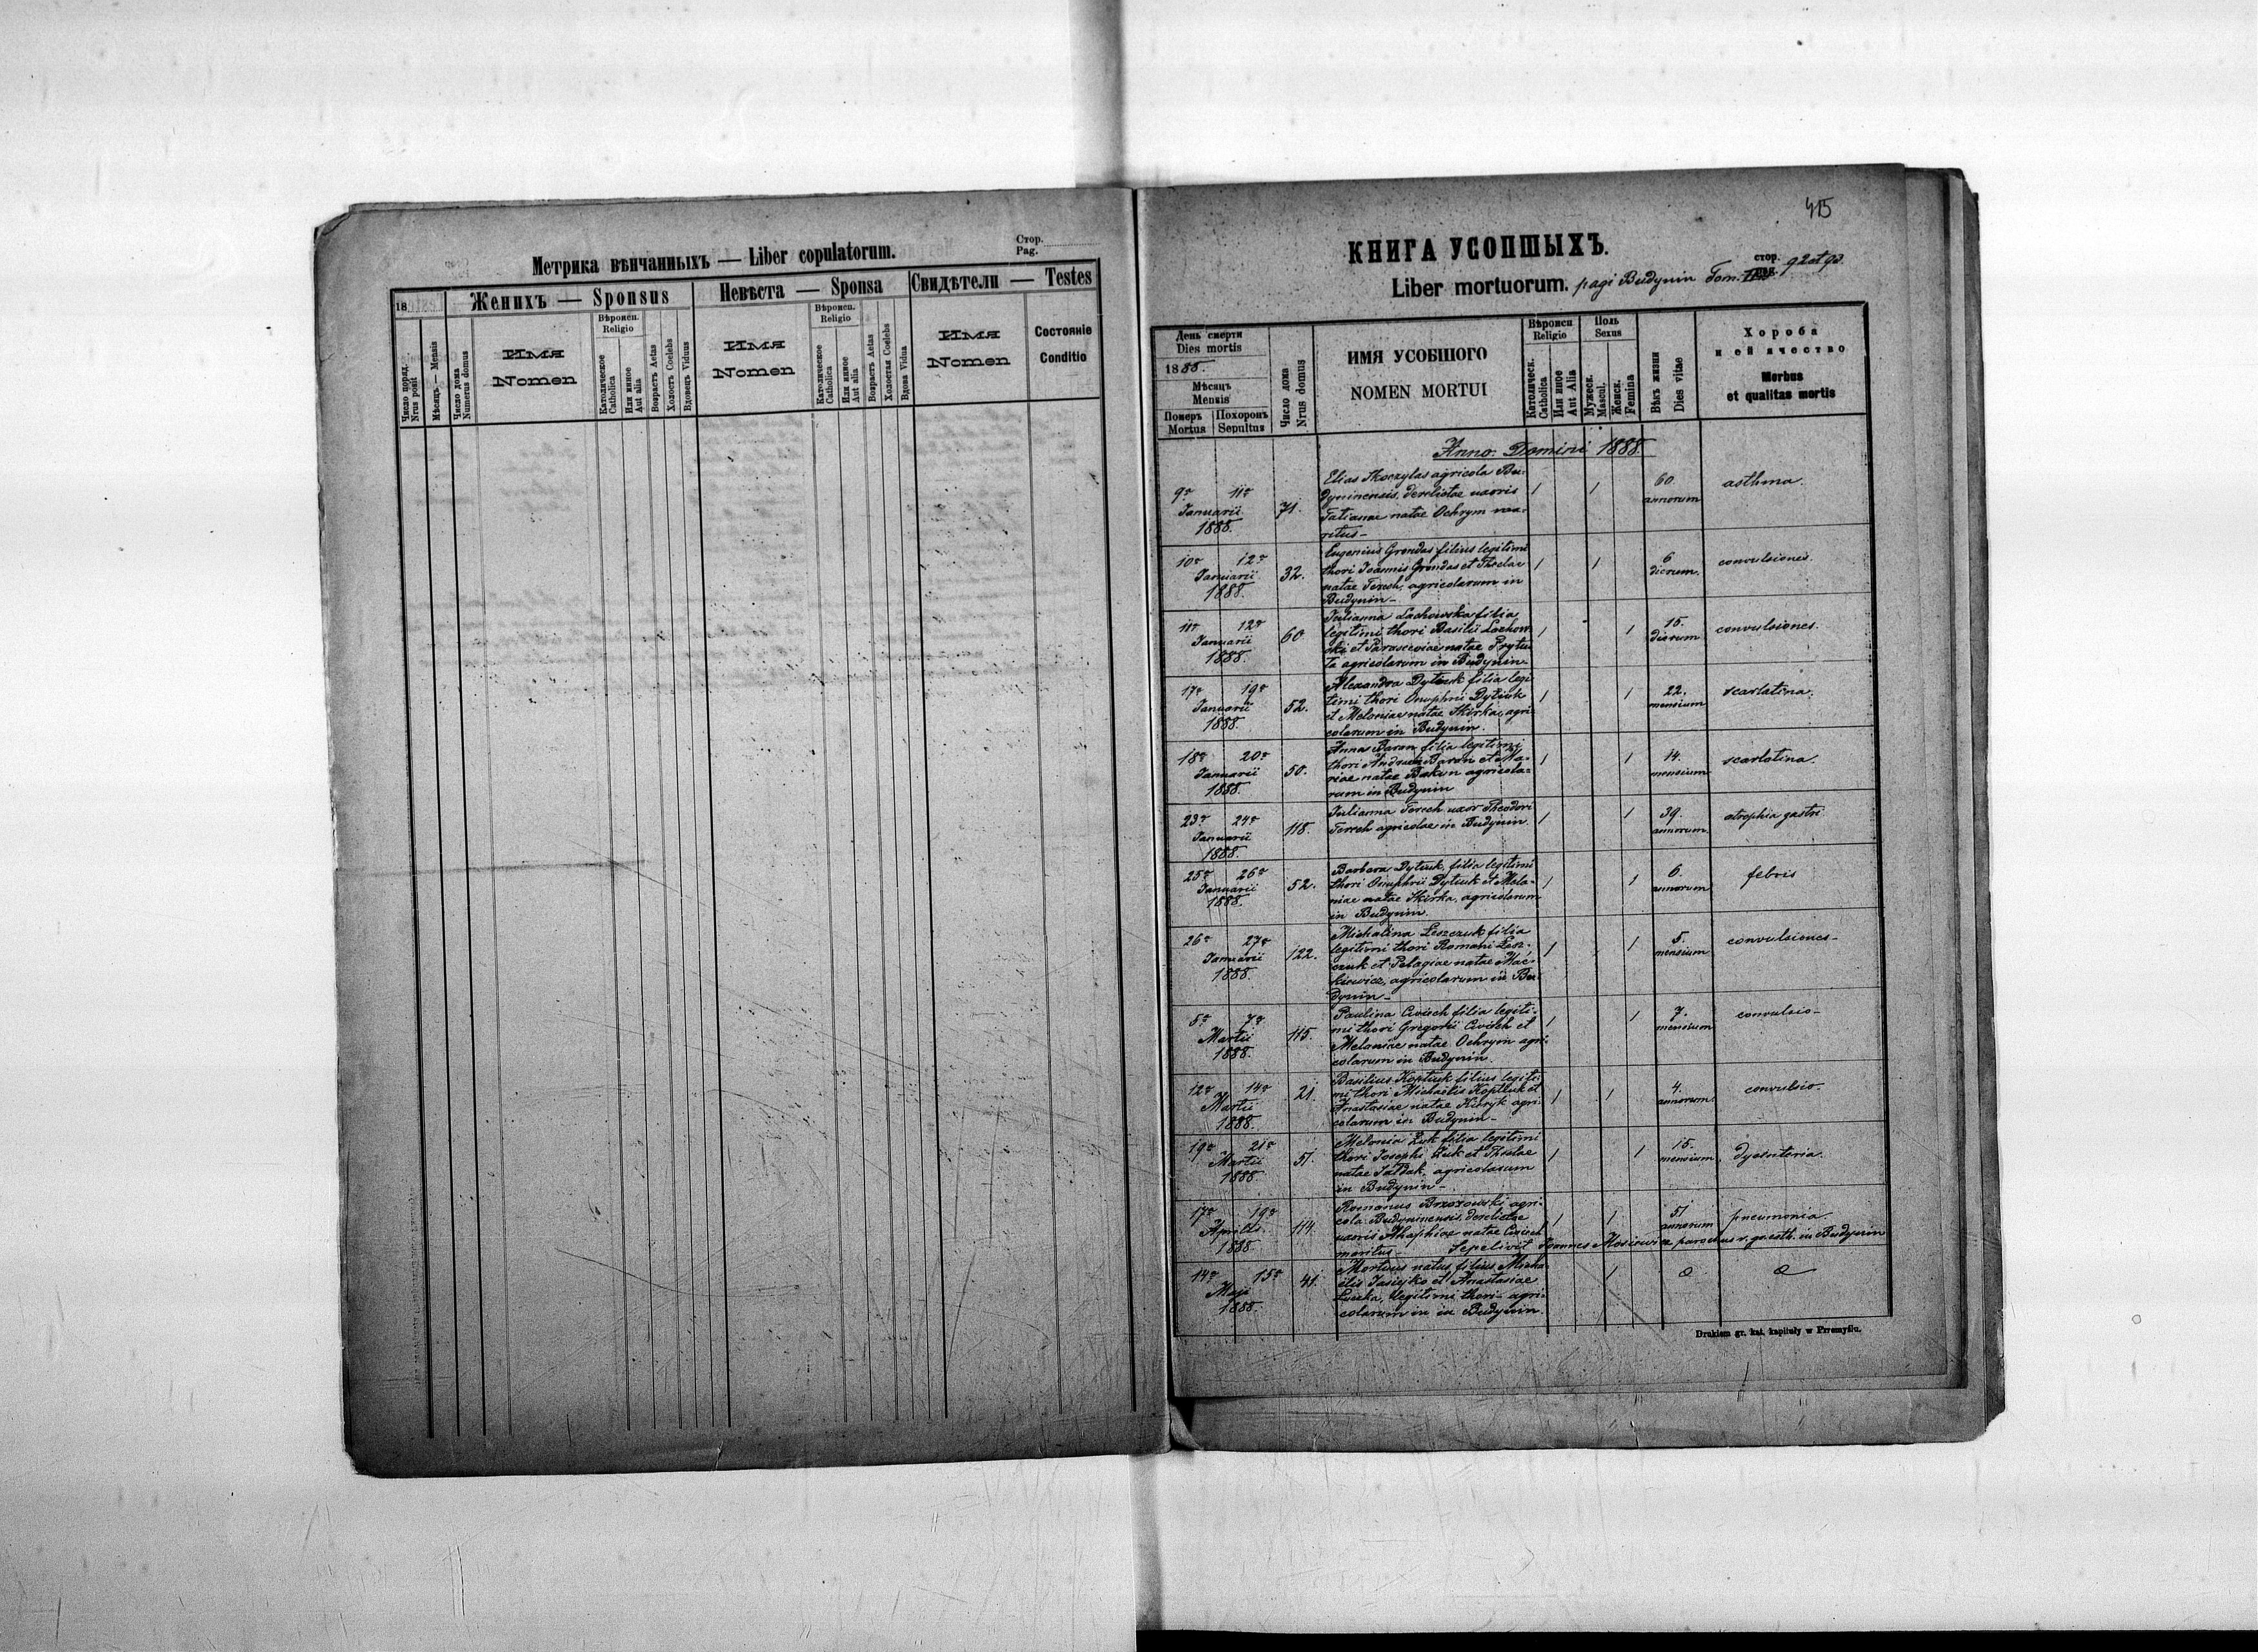 Стор.
Pag.
Метрика вѣнчанныхъ — Liber copulatorum.
18
Женихъ — Sponsus
Невѣста — Sponsa
Свидѣтели — Testes
Число поряд.
Nrus posit
Мѣсяцъ. — Mensis
Число дома
Numerus domus
Имя
Nomen
Вѣроисп.
Religio
Католическое
Catholica
Или иное
Aut alia
Возрастъ Aetas
Холостъ Coelebs
Вдовецъ Viduus
Имя
Nomen
Вѣроисп.
Religio
Католическое
Catholica
Или иное
Aut alia
Возрастъ Aetas
Холостая Coelebs
Вдова Vidua
Имя
Nomen
Состояніе
Conditio
415
КНИГА УСОПШЫХЪ.
Liber mortuorum. pagi Budynin Tom.
стор.
pag. 92 et 93
День смерти
Dies mortis
1888.
Мѣсяцъ
Mensis
Померъ
Mortus
Похоронъ
Sepultus
Число дома
Nrus domus
ИМЯ УСОБШОГО
NOMEN MORTUI
Вѣроисп
Religio
Католическ.
Catholica
Или иное
Aut Alia
Поль
Sexus
Мужеск.
Mascul.
Женск.
Femina
Вѣкъ жизни
Dies vitae
Хороба
и ей ячество
Morbus
et qualitas mortis
Anno Domini 1888.
9a 11a
Januarii
1888.
71.
Elias Skoczylas agricola Bu-
dyninensis, derelictae uxoris
Tatianae natae Ochrym ma-
ritus –
1 1
60.
annorum
asthma.
10a 12a
Januarii
1888.
32.
Eugenius Grondas filius legitimi
thori Joannis Grondas et Theclae
natae Terech, agricolarum in
Budynin –
1 1
6
dierum.
convulsiones
11a 12a
Januarii
1888.
60.
Julianna Lachowska filia
legitimi thori Basilii Lachow-
ski et Parasceviae natae Prytu-
la agricolarum in Budynin
1 1
15.
dierum
convulsiones.
17a 19a
Januarii
1888.
52.
Alexandra Dytiuk filia legi
timi thori Onuphrii Dytiuk
et Melaniae natae Skirka, agri-
colarum in Budynin.
1 1
22.
mensium
scarlatina.
18a 20a
Januarii
1888.
50.
Anna Baran filia legitimi
thori Andreae Baran et Ma-
riae natae Bakun agricola-
rum in Budynin
1 1
14.
mensium
scarlatina.
23a 24a
Januarii
1888.
118.
Julianna Terech uxor Theodori
Terech agricolae in Budynin.
1 1
39.
annorum.
atrophia gastri
25a 26a
Januarii
1888.
52.
Barbara Dytiuk, filia legitimi
thori Onuphrii Dytiuk et Mela-
niae natae Skirka, agricolarum
in Budynin.
1 1
6.
annorum
febris
26a 27a
Januarii
1888.
122.
Michalina Leszczuk filia
legitimi thori Romani Lesz-
czuk et Pelagiae natae Mac-
kiewicz, agricolarum in Bu-
dynin –
1 1
5.
mensium
convulsiones –
5a 7a
Martii
1888.
115.
Paulina Cwiech filia legiti-
mi thori Gregorii Cwiech et
Melaniae natae Ochrym agri-
colarum in Budynin.
1 1
7.
mensium
convulsio –
12a 14a
Martii
1888.
21.
Basilius Koptiuk filius legiti-
mi thori Michaelis Koptiuk et
Anastasiae natae Kiryk agri-
colarum in Budynin –
1 1
4.
annorum.
convulsio –
19a 21a
Martii
1888.
51.
Melania Żuk filia legitimi
thori Josephi Żuk et Theclae
natae Jałdak, agricolarum
in Budynin –
1 1
15.
mensium
dysenteria.
17a 19a
Aprilis.
1888.
114.
Romanus Brzozowski agri-
cola Budyninensis, derelictae
uxoris Ahaphiae natae Cwiech
maritus
1 1
51
annorum
pneumonia
Sepelivit Joannes Mosiewicz parochus r. gr. cath. in Budynin
14a 15a
Maji
1888.
41.
Mortuus natus filius Micha-
elis Jasiejko et Anastasiae
legitimi thori – agri-
colarum in in Budynin.
1
Drukiem gr. kat. kapituły w Przemyślu.